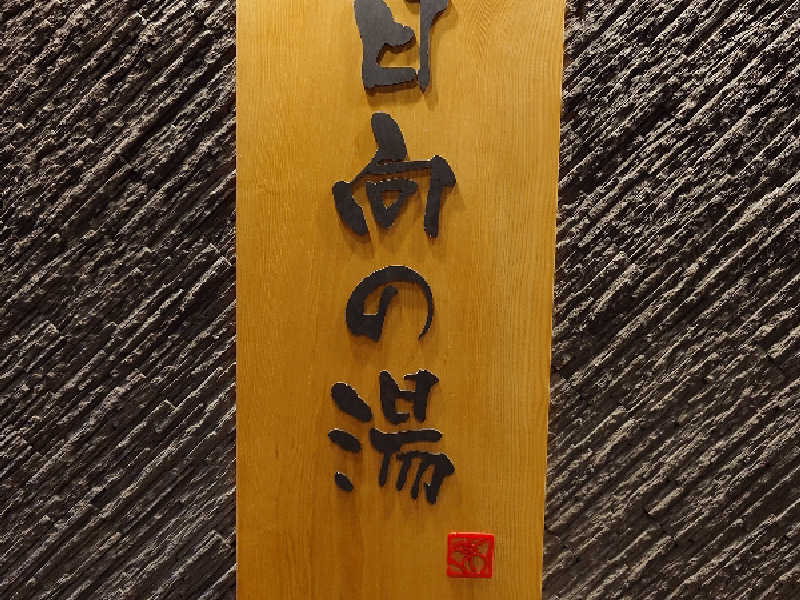 日向の湯